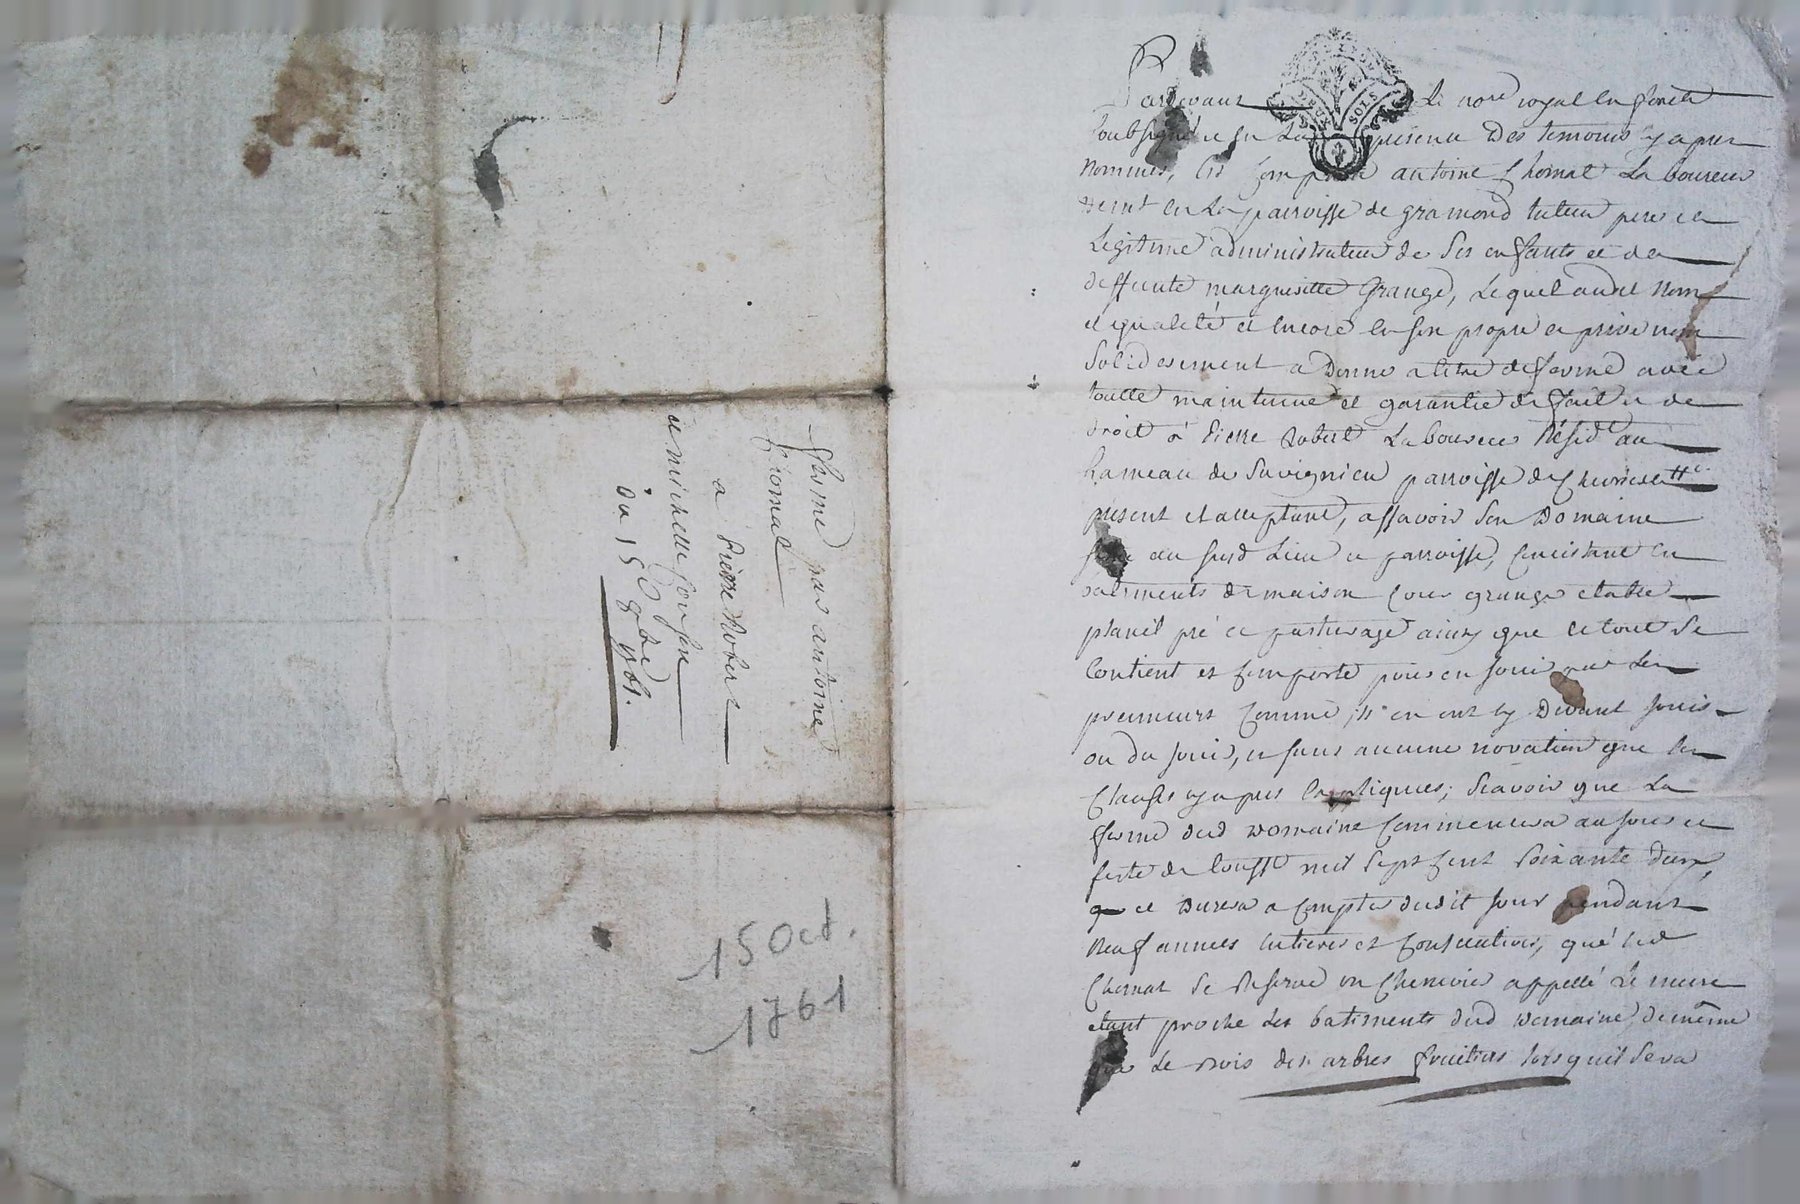 ferme par antoine
Chomat
a Pierre Robert
et michelle
du 15 8bre 1761.
15 Oct.
1761
DEUX SOLS
Pardevant Le nore royal en forests
soubsigné et en La presence Des temoins cy apres
nommés, Est Comparu antoine Chomat Laboureur
demt en La parroisse de gramond tuteur pere et
Legitime administrateur de ses enfants et de
deffunte margueritte Grange, Lequel aud. nom
et qualité et encore en son propre et privé nom
solidairement a Donné a titre de ferme avec
toutte maintenue et garantie de fait et de
droit à Pierre Robert Laboureur Résidt au
hameau de Savignieu parroisse de Chevrieres
present et acceptant, assavoir son Domaine
situé au susd. Lieu et parroisse, Consistant en
batiments de maison Cour grange etable
pré et pasturage ainsy que le tout se
Contient et Comporte pour en jouir par les
preneurs Comme ils en ont cy Devant jouis
ou du jouir, et sans aucune novation que les
Clauses cy apres Expliquées; scavoir que La
ferme dud Domaine Commencera au jour et
feste de toussts mil sept Cent soixante deux,
et Durera a Compter dudit jour pendant
neuf années entieres et Consecutives, que led
Chomat se reserve un Chenevier appellé Le
etant proche des batiments dud Domaine, de même
que Le Bois des arbres fruitiers lorsquil sera